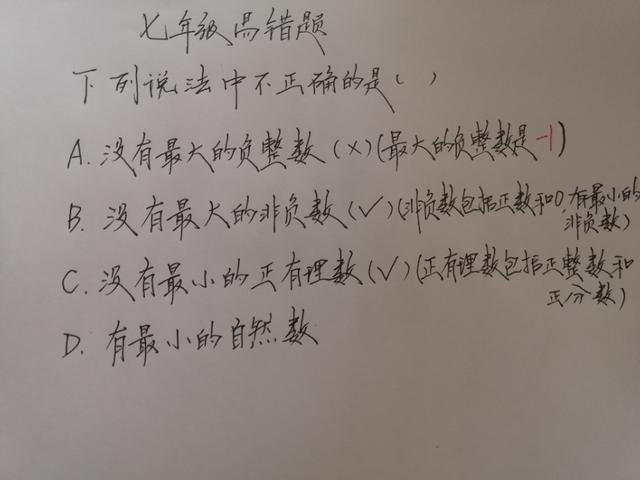 七年级易错题
下列说法中不正确的是( )
A. 没有最大的负整数(×)(最大的负整数是-1)
B. 没有最大的非负数(√)(非负数包括正数和0,有最小的
非负数)
C. 没有最小的正有理数(√)(正有理数包括正整数和
正分数)
D. 有最小的自然数